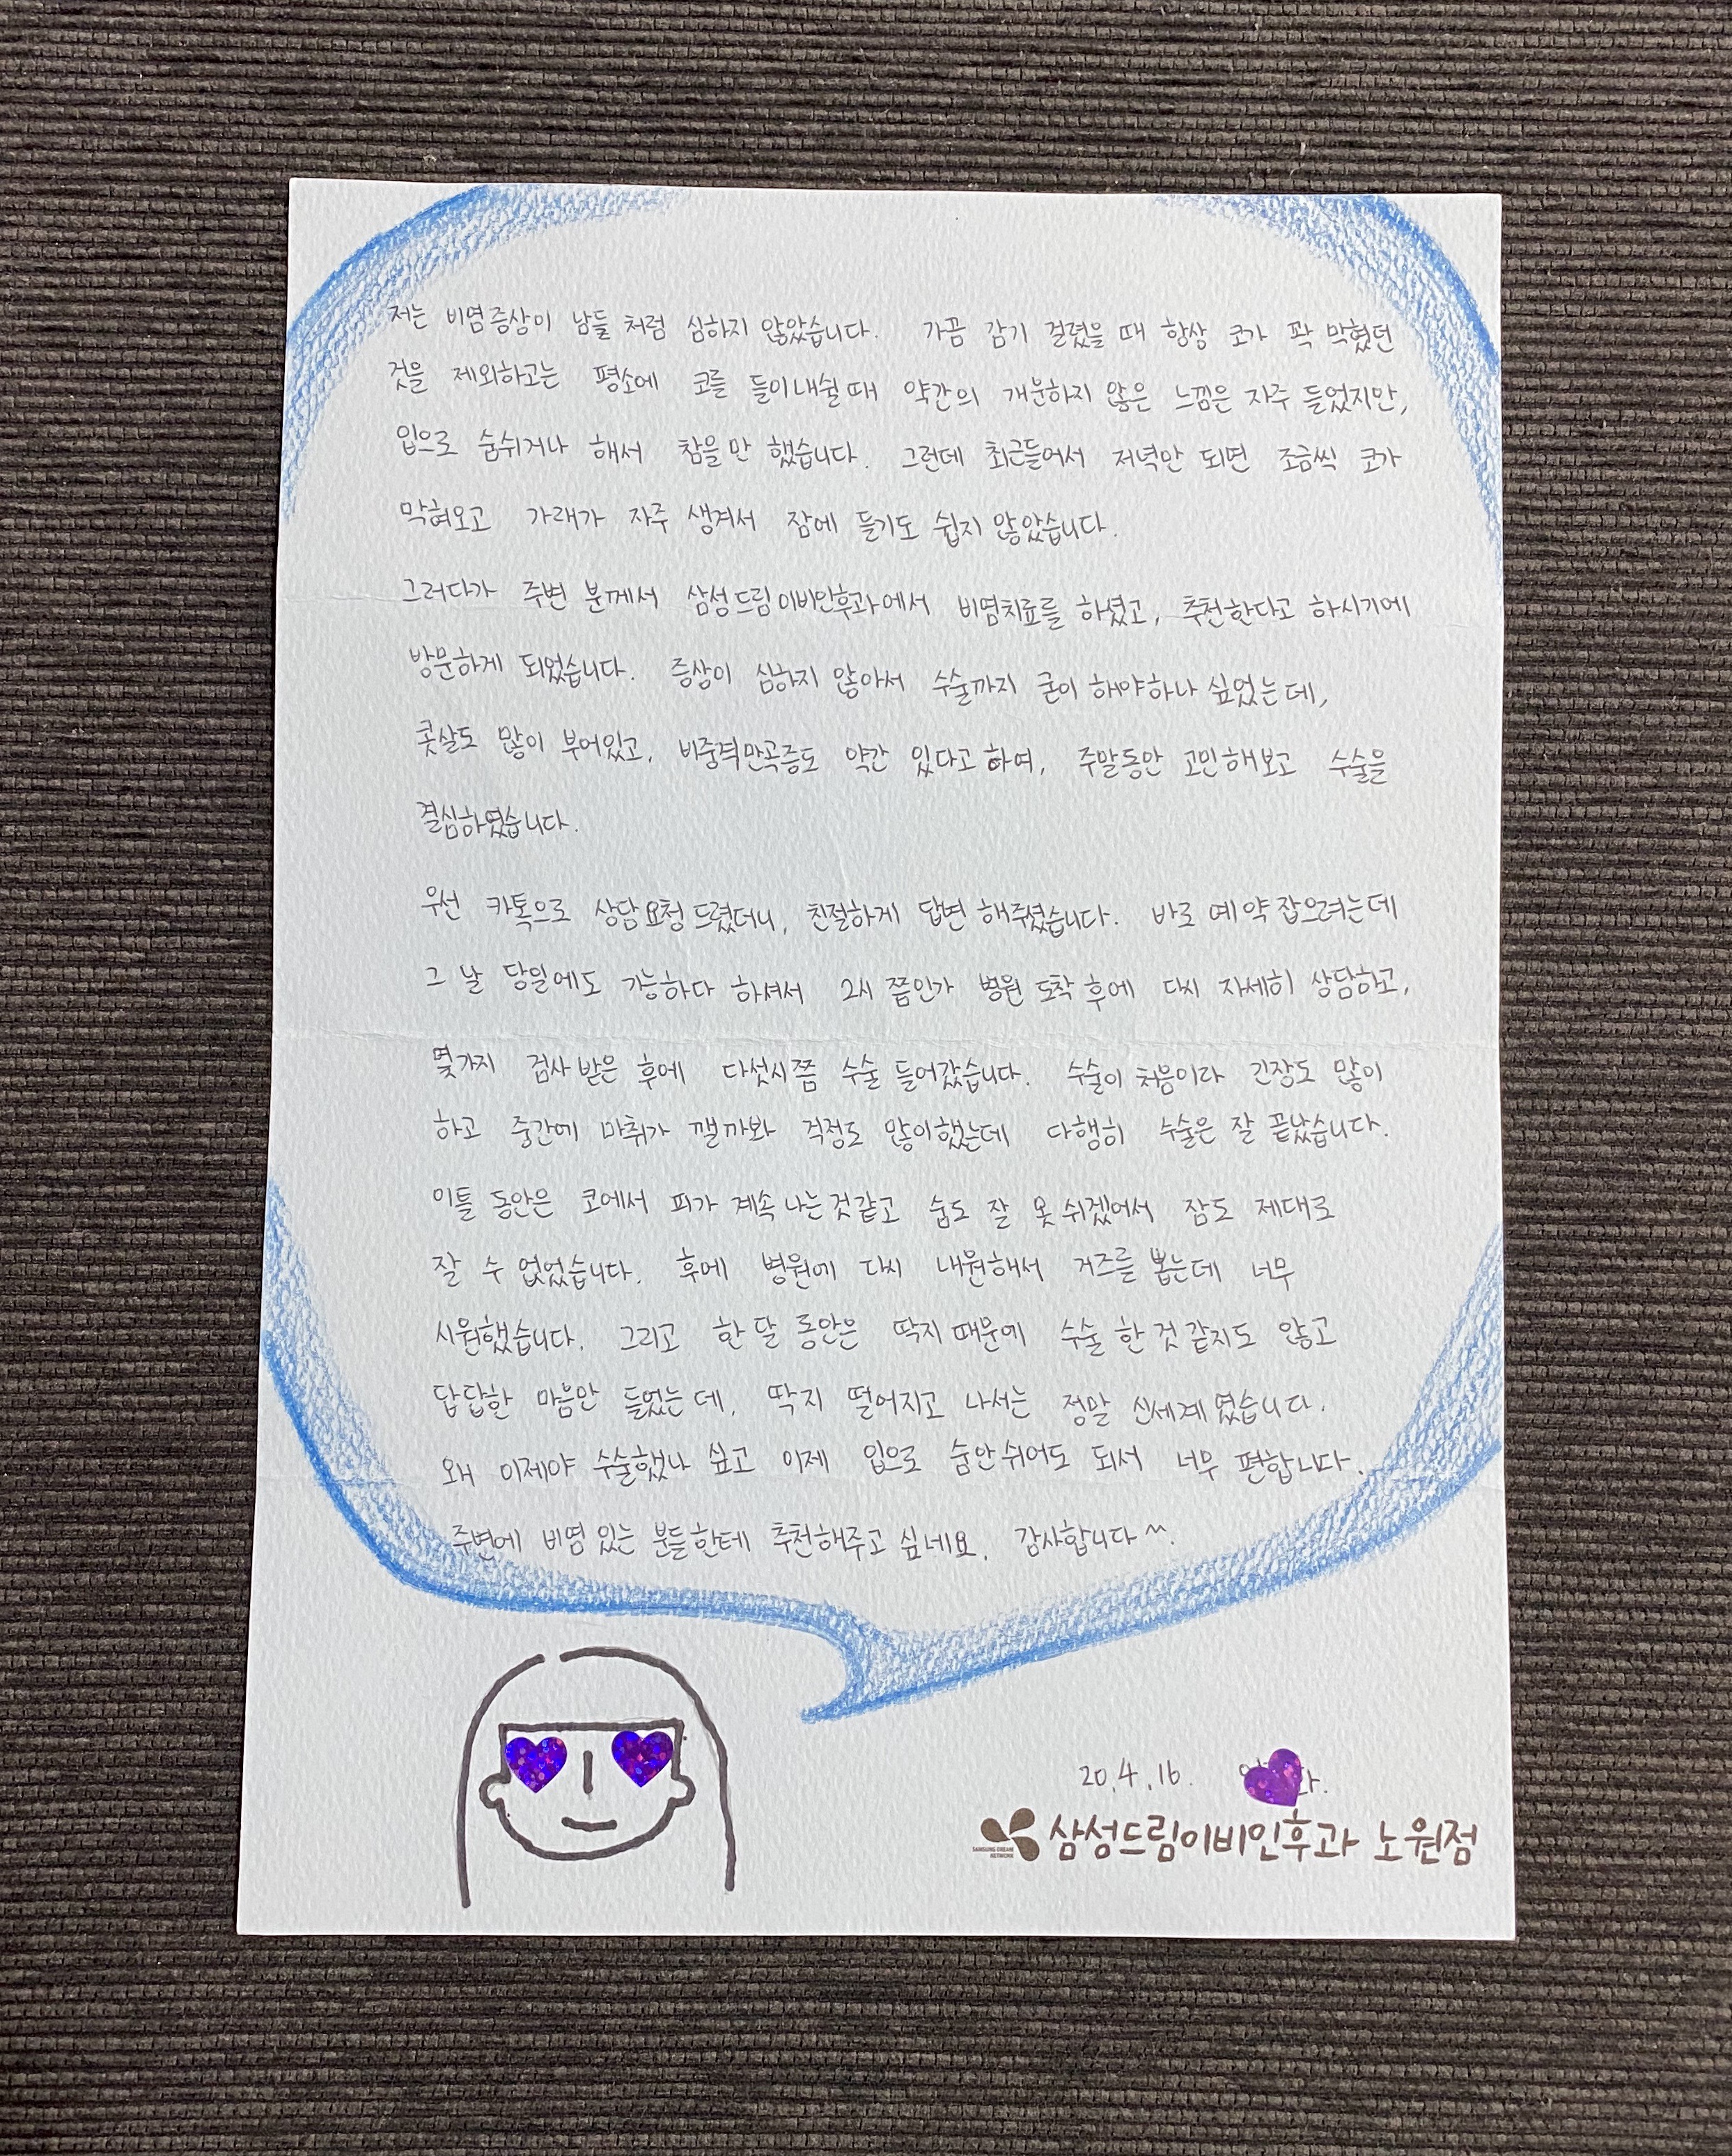 저는 비염증상이 남들 처럼 심하지 않았습니다. 가끔 감기 걸렸을 때 항상 코가 꽉 막혔던
것을 제외하고는 평소에 코를 들이내쉴때 약간의 개운하지 않은 느낌은 자주 들었지만,
입으로 숨쉬거나 해서 참을만 했습니다. 그런데 최근들어서 저녁만 되면 조금씩 코가
막혀오고 가래가 자주 생겨서 잠에 들기도 쉽지 않았습니다.
그러다가 주변 분께서 삼성드림이비인후과에서 비염치료를 하셨고, 추천한다고 하시기에
방문하게 되었습니다. 증상이 심하지 않아서 수술까지 굳이 해야하나 싶었는데,
콧살도 많이 부어있고, 비중격만곡증도 약간 있다고 하여, 주말동안 고민해보고 수술을
결심하였습니다.
우선 카톡으로 상담요청 드렸더니, 친절하게 답변 해주셨습니다. 바로 예약 잡으려는데
그 날 당일에도 가능하다 하셔서 2시 쯤인가 병원 도착 후에 다시 자세히 상담하고,
몇가지 검사 받은 후에 다섯시쯤 수술 들어갔습니다. 수술이 처음이라 긴장도 많이
하고 중간에 마취가 깰까봐 걱정도 많이했는데 다행히 수술은 잘 끝났습니다.
이틀 동안은 코에서 피가 계속 나는것같고 숨도 잘 못 쉬겠어서 잠도 제대로
잘 수 없었습니다. 후에 병원에 다시 내원해서 거즈를 뽑는데 너무
시원했습니다. 그리고 한 달 동안은 딱지 때문에 수술 한 것 같지도 않고
답답한 마음만 들었는데, 딱지 떨어지고 나서는 정말 신세계였습니다.
왜 이제야 수술했나 싶고 이제 입으로 숨안쉬어도 되서 너무 편합니다.
주변에 비염 있는 분들한테 추천해주고 싶네요. 감사합니다^^.
20.4.16.
SAMSUNG DREAM NETWORK 삼성드림이비인후과 노원점